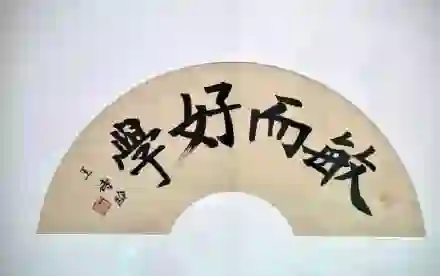 敏而好學